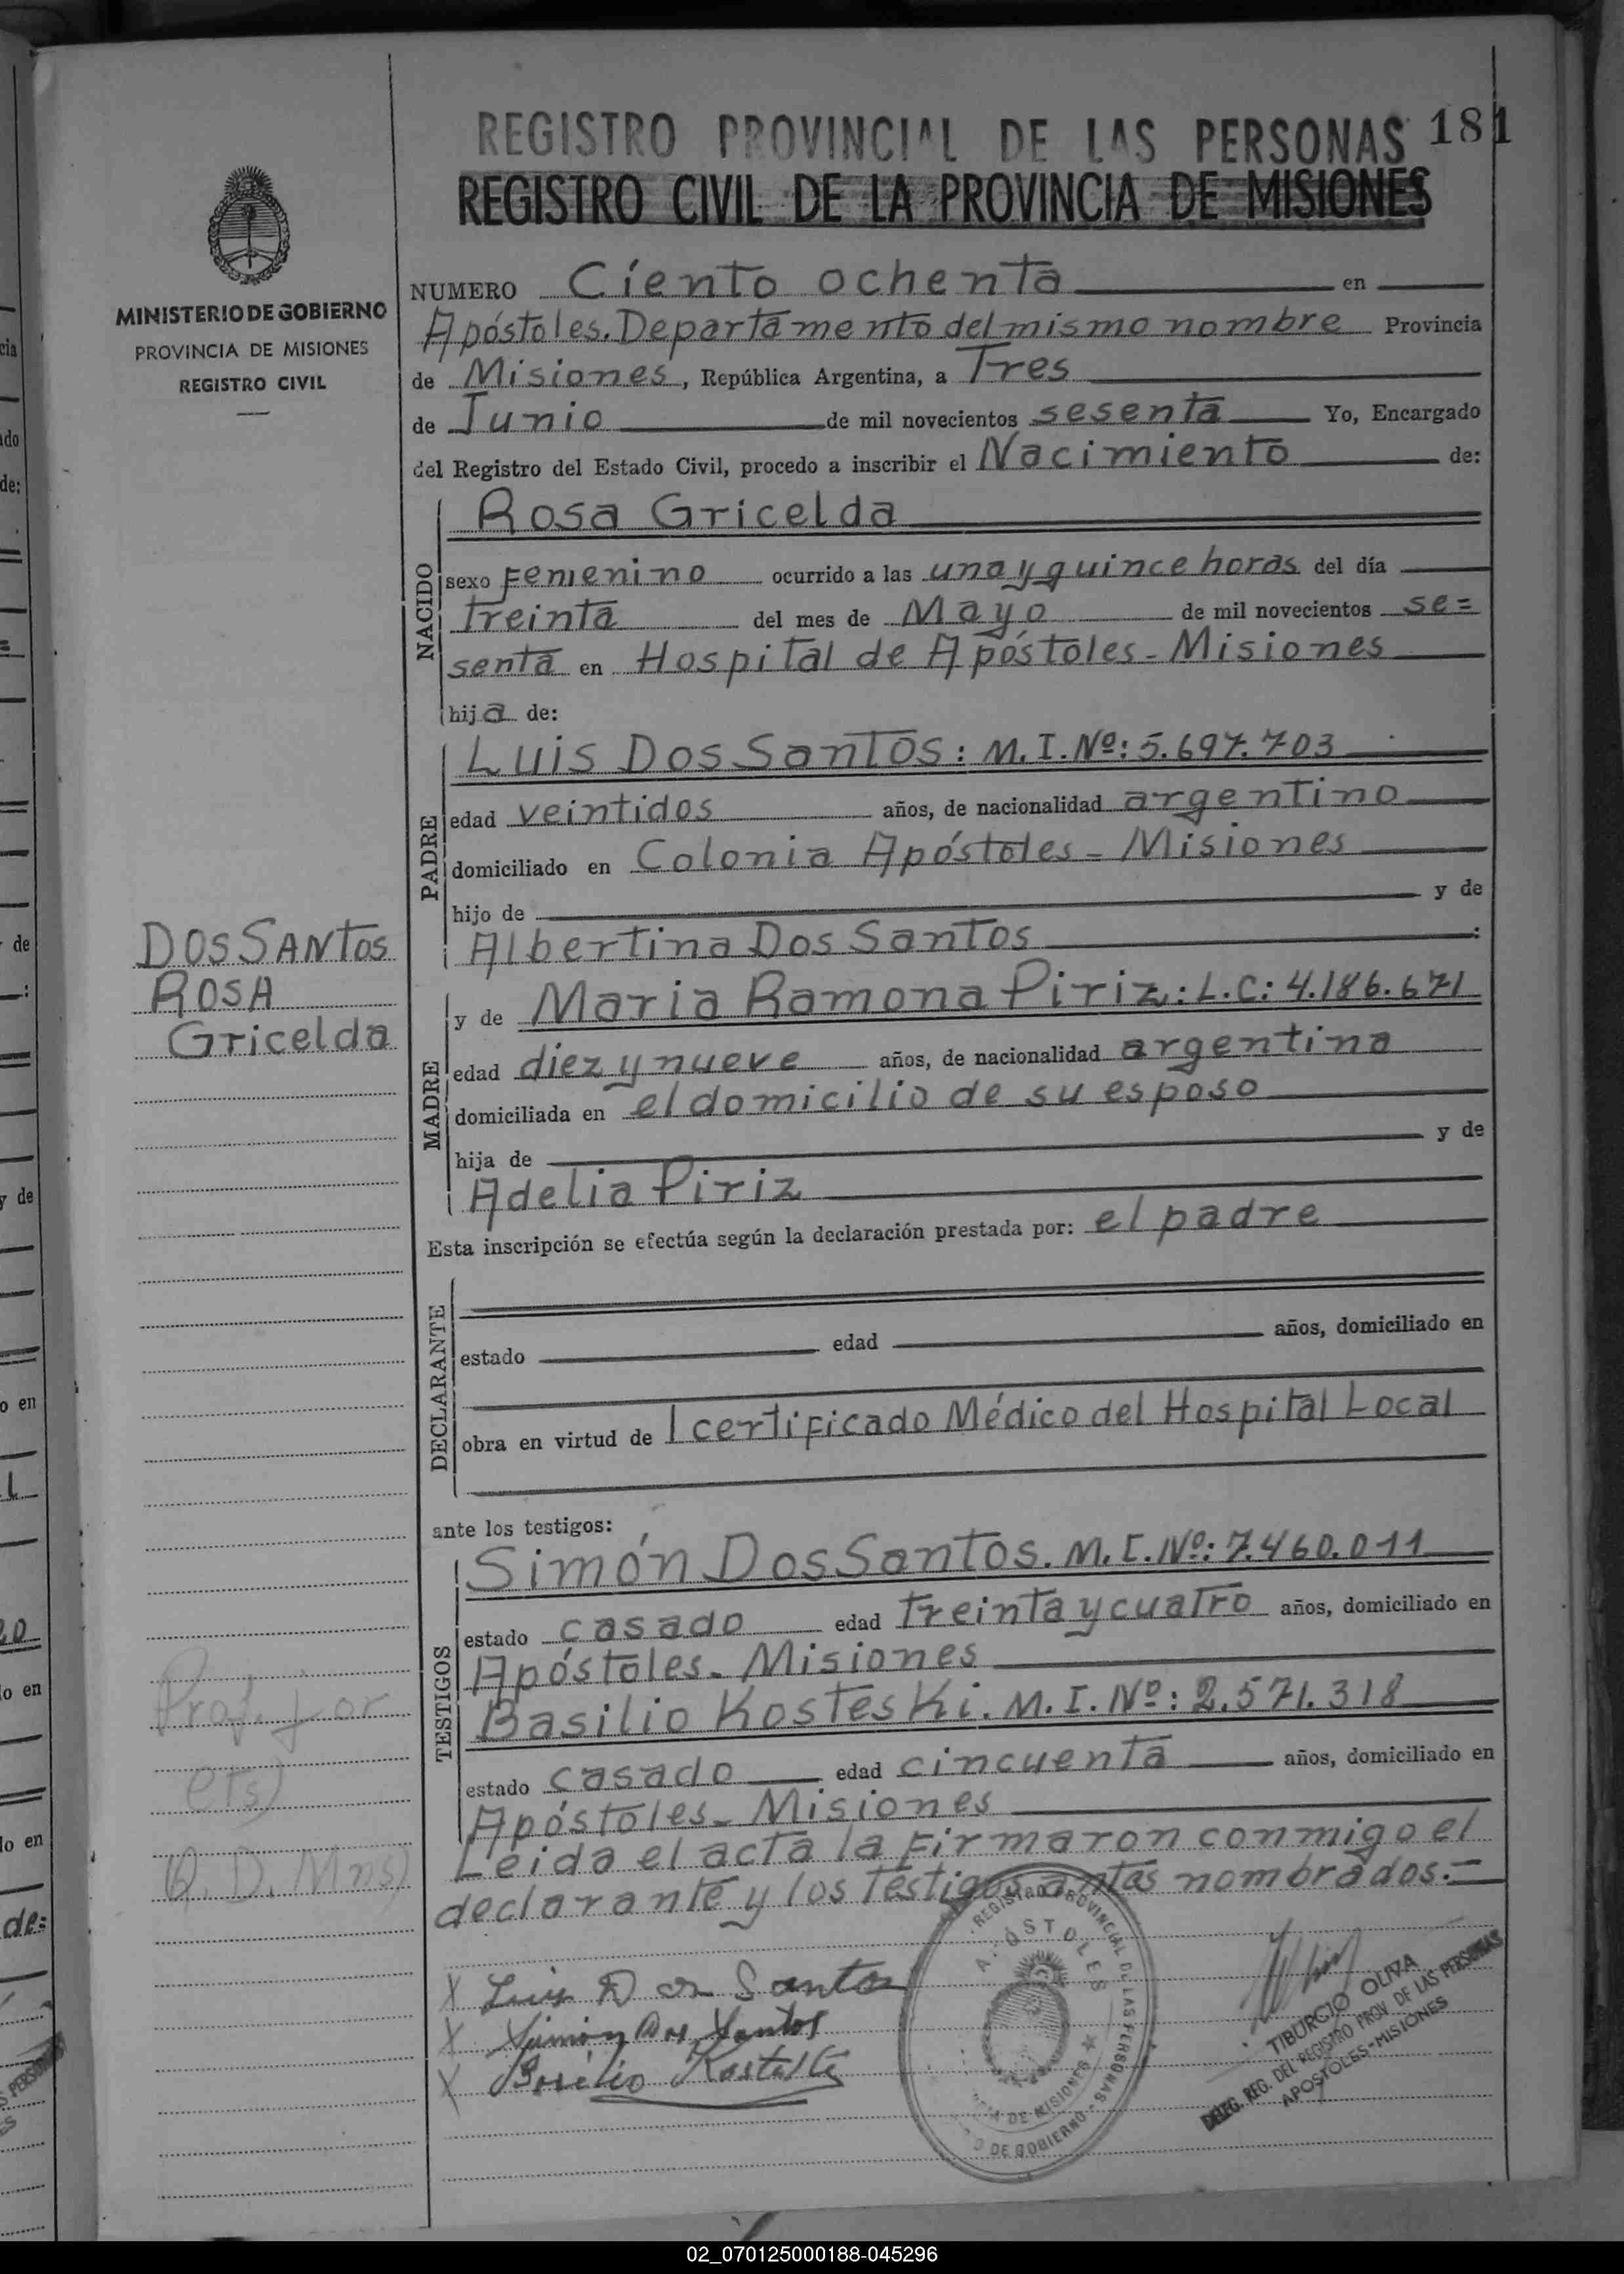 REGISTRO PROVINCIAL DE LAS PERSONAS 181
REGISTRO CIVIL DE LA PROVINCIA DE MISIONES
MINISTERIO DE GOBIERNO
PROVINCIA DE MISIONES
REGISTRO CIVIL
NUMERO Ciento ochenta en
Apóstoles. Departamento del mismo nombre Provincia
de Misiones, República Argentina, a Tres
de Junio de mil novecientos sesenta Yo, Encargado
del Registro del Estado Civil, procedo a inscribir el Nacimiento de:
NACIDO
Rosa Gricelda
sexo Femenino ocurrido a las una y quince horas del día
treinta del mes de Mayo de mil novecientos se=
senta en Hospital de Apóstoles - Misiones
hija de:
PADRE
Luis Dos Santos: M.I.Nº: 5.697.703
edad veintidos años, de nacionalidad argentino
domiciliado en Colonia Apóstoles - Misiones
hijo de y de
Albertina Dos Santos :
DOS SANTOS
ROSA
Gricelda
MADRE
y de Maria Ramona Piriz: L.C: 4.186.671
edad diez y nueve años, de nacionalidad argentina
domiciliada en el domicilio de su esposo
hija de y de
Adelia Piriz
Esta inscripción se efectúa según la declaración prestada por: el padre
DECLARANTE
estado edad años, domiciliado en
obra en virtud de 1 certificado Médico del Hospital Local
ante los testigos:
TESTIGOS
Simón Dos Santos. M.I.Nº: 7.460.011
estado casado edad treinta y cuatro años, domiciliado en
Apóstoles. Misiones
Basilio Kosteski. M.I.Nº: 2.571.318
estado casado edad cincuenta años, domiciliado en
Apóstoles - Misiones
Leida el acta la firmaron conmigo el
declarante y los testigos antes nombrados.=
X Luis Dos Santos
X Simón Dos Santos
X Basilio Kosteski
REGISTRO PROVINCIAL DE LAS PERSONAS
APOSTOLES
DE GOBIERNO
DE MISIONES
TIBURCIO OLIVA
DELEG. REG. DEL REGISTRO PROV. DE LAS PERSONAS
APOSTOLES - MISIONES
02_070125000188-045296